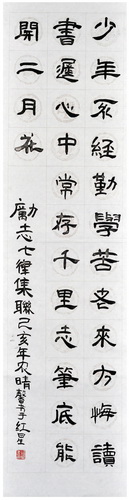 少年不經勤學苦老來方悔讀
書遲心中常存千里志筆底能
開二月花
勵志七律集聯己亥年晴紅星